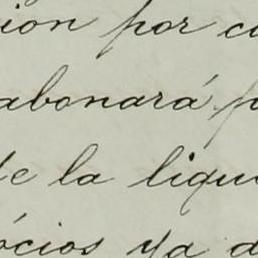 ion por c
abonará p
te la liqui
ócios ya d